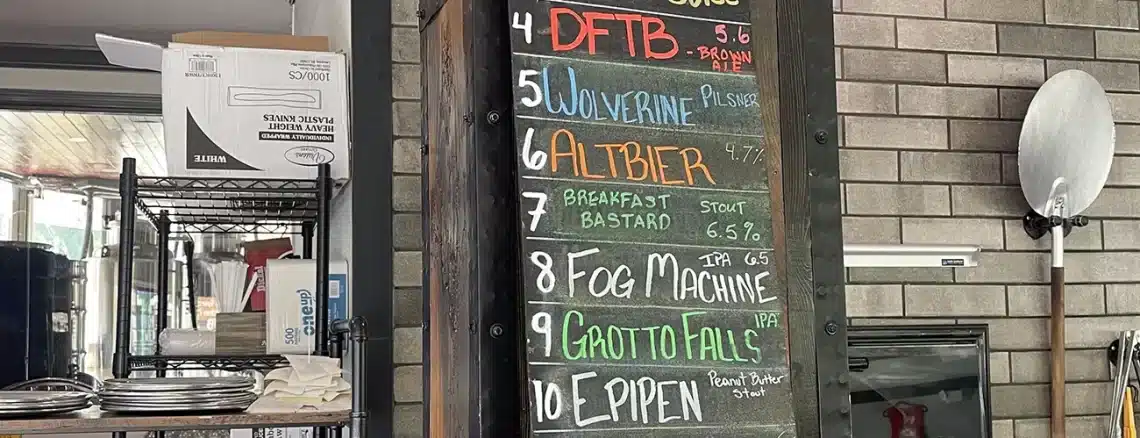 4 DFTB 5.6
- BROWN
ALE
5 WOLVERINE PILSNER
6 ALTBIER 4.7%
7 BREAKFAST
BASTARD STOUT
6.5%
8 FOG MACHINE IPA 6.5
9 GROTTO FALLS IPA
10 EPIPEN Peanut Butter
Stout
1000/CS
HEAVY WEIGHT
PLASTIC KNIVES
INDIVIDUALLY WRAPPED
WHITE
500
oneup